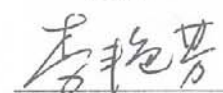 李艳芳